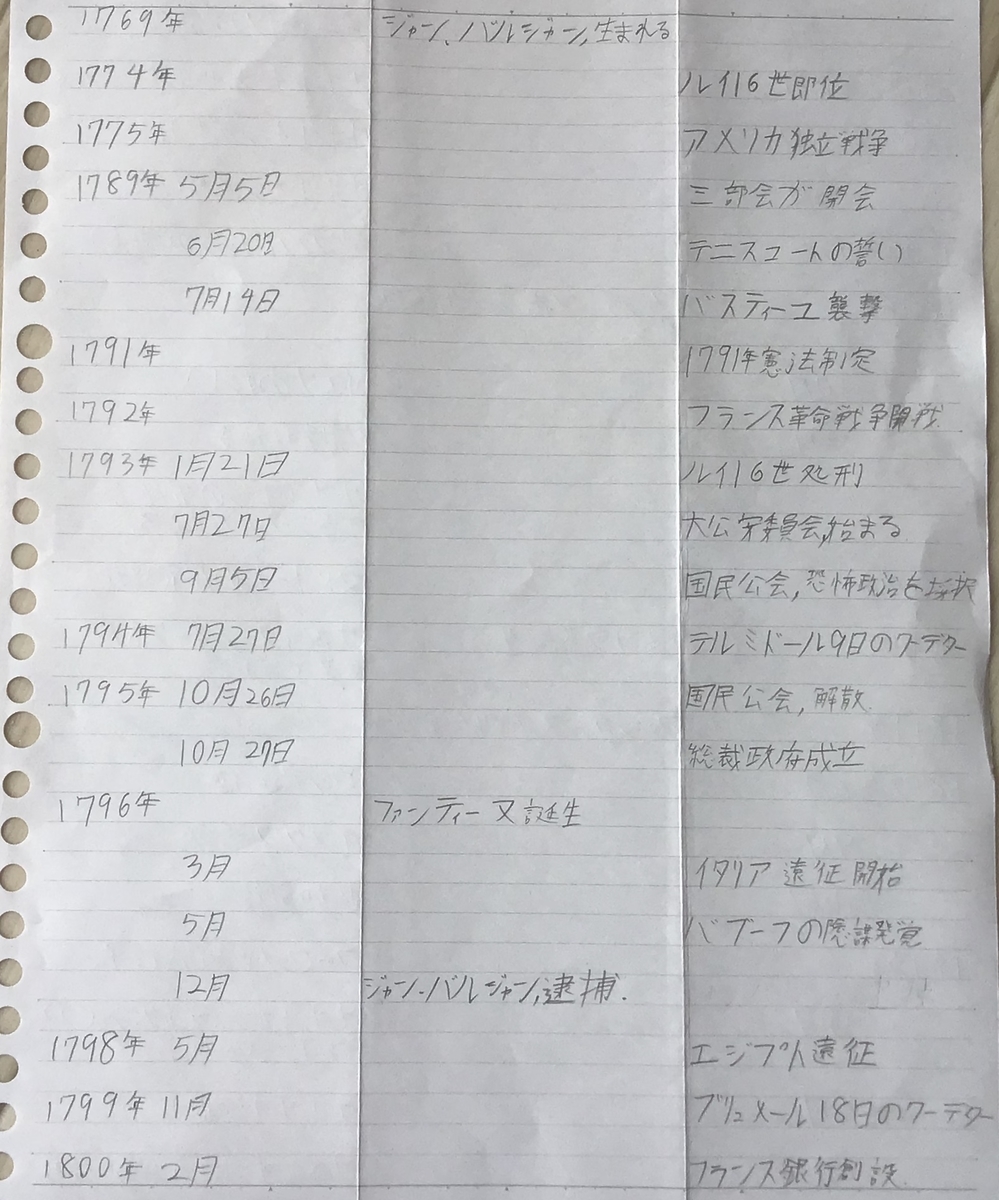 1769年 ジャン、バルジャン,生まれる
1774年 ルイ16世即位
1775年 アメリカ独立戦争
1789年 5月5日 三部会が開会
6月20日 テニスコートの誓い
7月14日 バスティーユ襲撃
1791年 1791年憲法制定
1792年 フランス革命戦争開戦
1793年 1月21日 ルイ16世処刑
7月27日 大公安委員会,始まる
9月5日 国民公会,恐怖政治を採択
1794年 7月27日 テルミドール9日のクーデター
1795年 10月26日 国民公会,解散
10月27日 総裁政府成立
1796年 ファンティーヌ誕生
3月 イタリア遠征開始
5月 バブーフの陰謀発覚
12月 ジャン・バルジャン,逮捕.
1798年 5月 エジプト遠征
1799年 11月 ブリュメール18日のクーデター
1800年 2月 フランス銀行創設